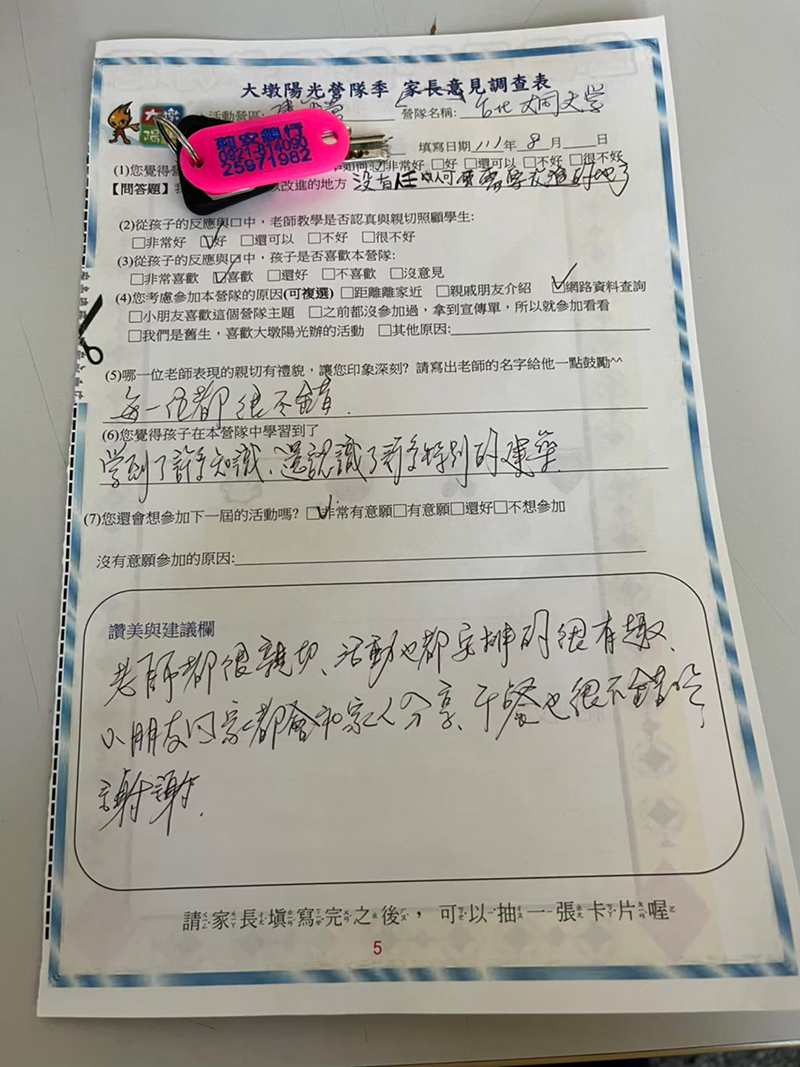 大墩陽光營隊季 家長意見調查表
活動營區: 營隊名稱: 台北大同大学
大墩
陽
填寫日期 111年 8月 日
鎖行
0921-814090
25971982
(1)您覺得 如何 ☑非常好 □好 □還可以 □不好 □很不好
【問答題】 改進的地方 沒有任何需要改進的地方
(2)從孩子的反應與口中，老師教學是否認真與親切照顧學生:
□非常好 ☑好 □還可以 □不好 □很不好
(3)從孩子的反應與口中，孩子是否喜歡本營隊:
□非常喜歡 ☑喜歡 □還好 □不喜歡 □沒意見
(4)您考慮參加本營隊的原因(可複選) □距離離家近 □親戚朋友介紹 ☑網路資料查詢
□小朋友喜歡這個營隊主題 □之前都沒參加過，拿到宣傳單，所以就參加看看
□我們是舊生，喜歡大墩陽光辦的活動 □其他原因:
(5)哪一位老師表現的親切有禮貌，讓您印象深刻? 請寫出老師的名字給他一點鼓勵^^
每一位都很不錯.
(6)您覺得孩子在本營隊中學習到了
學到了許多知識、還認識了許多特別的建築
(7)您還會想參加下一屆的活動嗎? ☑非常有意願□有意願□還好□不想參加
沒有意願參加的原因:
讚美與建議欄
老師都很親切、活動也都安排的很有趣、
小朋友回家都會和家人分享、午餐也很不錯吃
謝謝.
請家長填寫完之後，可以抽一張卡片喔
5